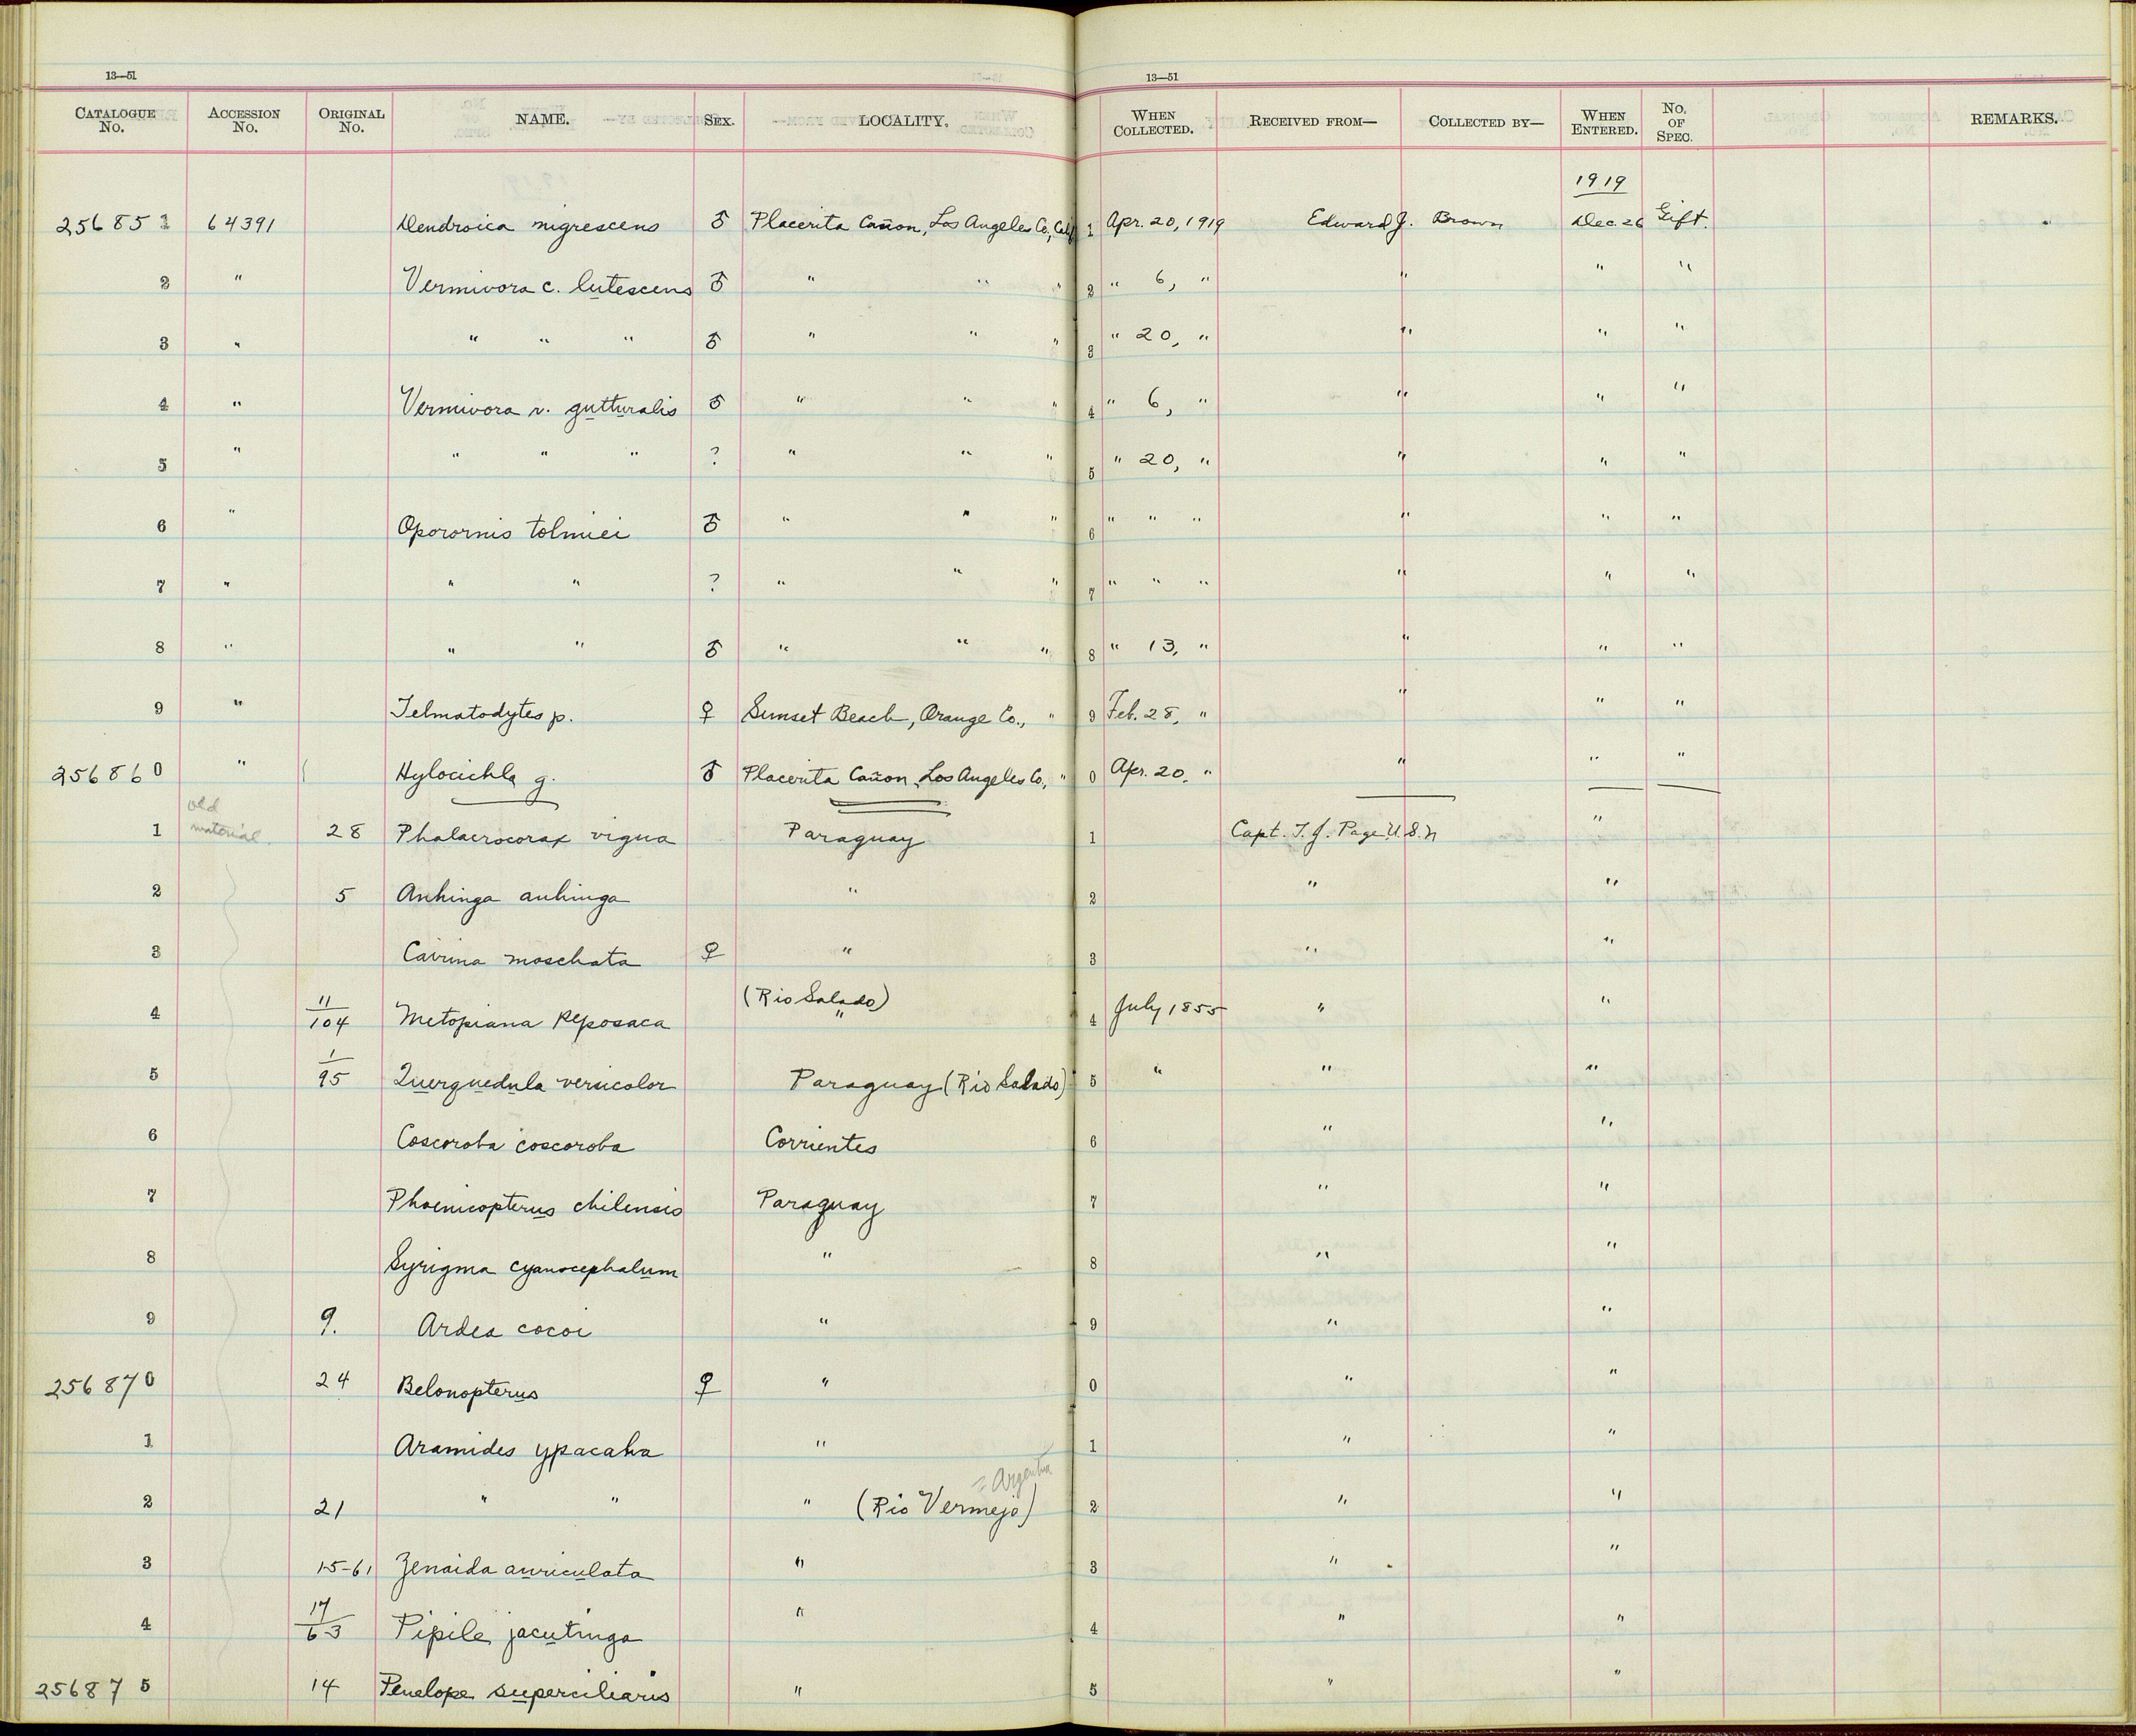 13—51 13—51
CATALOGUE No. ACCESSION No. ORIGINAL No. NAME. SEX. LOCALITY. WHEN COLLECTED. RECEIVED FROM— COLLECTED BY— WHEN ENTERED. No. OF SPEC. REMARKS.
1919
256851 64391 Dendroica nigrescens ♂ Placerita Cañon, Los Angeles Co., Calif 1 Apr. 20, 1919 Edward J. Brown Dec. 26 Gift.
2 " Vermivora c. lutescens ♂ " " " 2 " 6, " " " "
3 " " " " ♂ " " " 3 " 20, " " " "
4 " Vermivora r. gutturalis ♂ " " " 4 " 6, " " " "
5 " " " " ? " " " 5 " 20, " " " "
6 " Oporornis tolmiei ♂ " " " 6 " " " " " "
7 " " " ? " " " 7 " " " " " "
8 " " " ♂ " " " 8 " 13, " " " "
9 " Telmatodytes p. ♀ Sunset Beach, Orange Co., " 9 Feb. 28, " " " "
256860 " Hylocichla g. ♂ Placerita Cañon, Los Angeles Co., " 0 Apr. 20, " " " "
1 old material. 28 Phalacrocorax vigua Paraguay 1 Capt. T. J. Page U.S.N "
2 5 Anhinga anhinga " 2 " "
3 Cairina moschata ♀ " 3 " "
4 11/104 Metopiana peposaca (Rio Salado) " 4 July 1855 " "
5 1/95 Querquedula versicolor Paraguay (Rio Salado) 5 " " "
6 Coscoroba coscoroba Corrientes 6 " "
7 Phoenicopterus chilensis Paraguay 7 " "
8 Syrigma cyanocephalum " 8 " "
9 9. Ardea cocoi " 9 " "
256870 24 Belonopterus ♀ " 0 " "
1 Aramides ypacaha " 1 " "
= Argentina
2 21 " " " (Rio Vermejo) 2 " "
3 15-61 Zenaida auriculata " 3 " "
4 17/63 Pipile jacutinga " 4 " "
256875 14 Penelope superciliaris " 5 " "